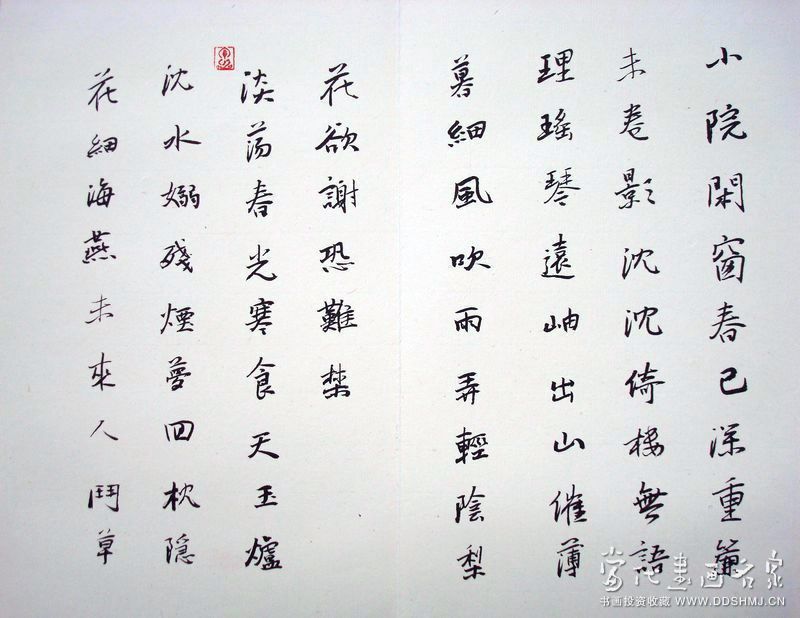 小院閑窗春已深重簾
未卷影沈沈倚樓無語
理瑤琴遠岫出山催薄
暮細風吹雨弄輕陰梨
花欲謝恐難禁
淡蕩春光寒食天玉爐
沈水嫋殘煙夢回枕隱
花細海燕未來人鬥草
當代書画名家
书画投资收藏 WWW.DDSHMJ.CN